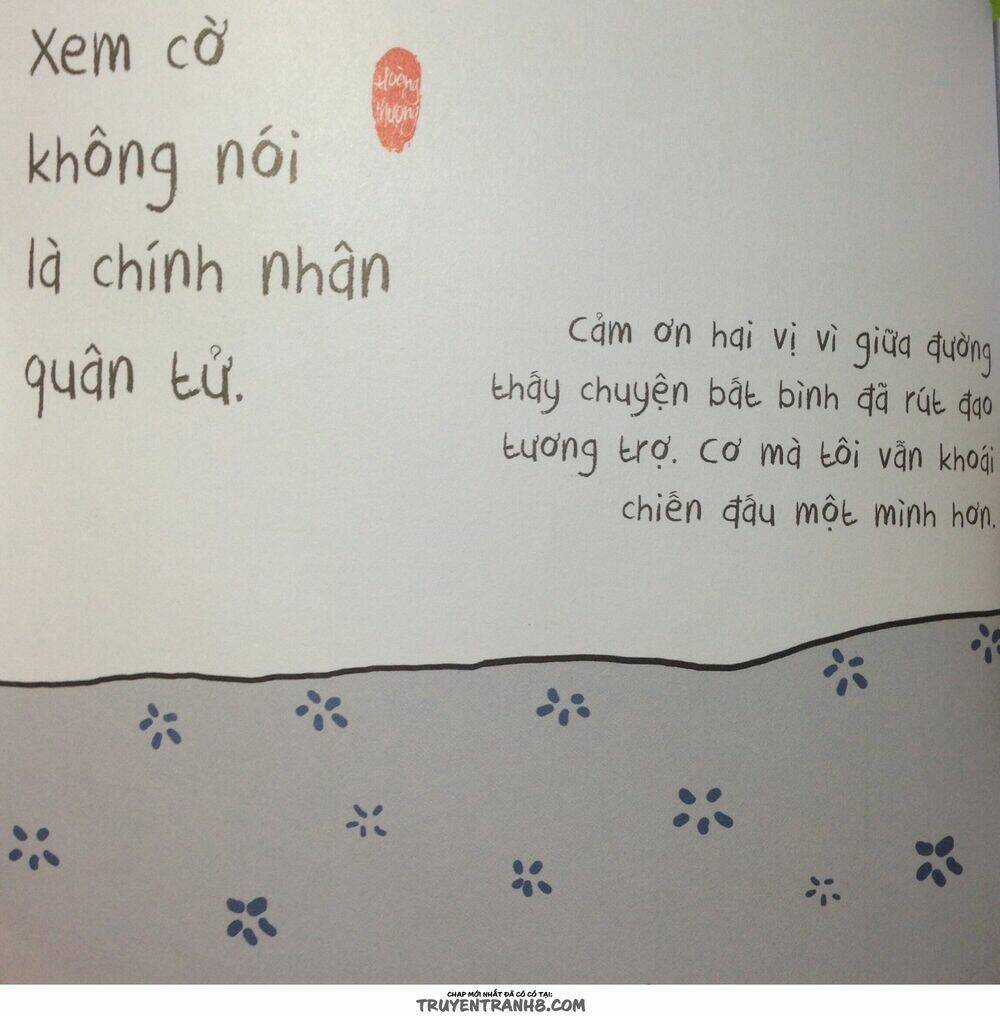 Xem cờ
không nói
là chính nhân
quân tử.
Hoàng
thượng
Cảm ơn hai vị vì giữa đường
thấy chuyện bất bình đã rút đao
tương trợ. Cơ mà tôi vẫn khoái
chiến đấu một mình hơn.
CHAP MỚI NHẤT ĐÃ CÓ CÓ TẠI:
TRUYENTRANH8.COM